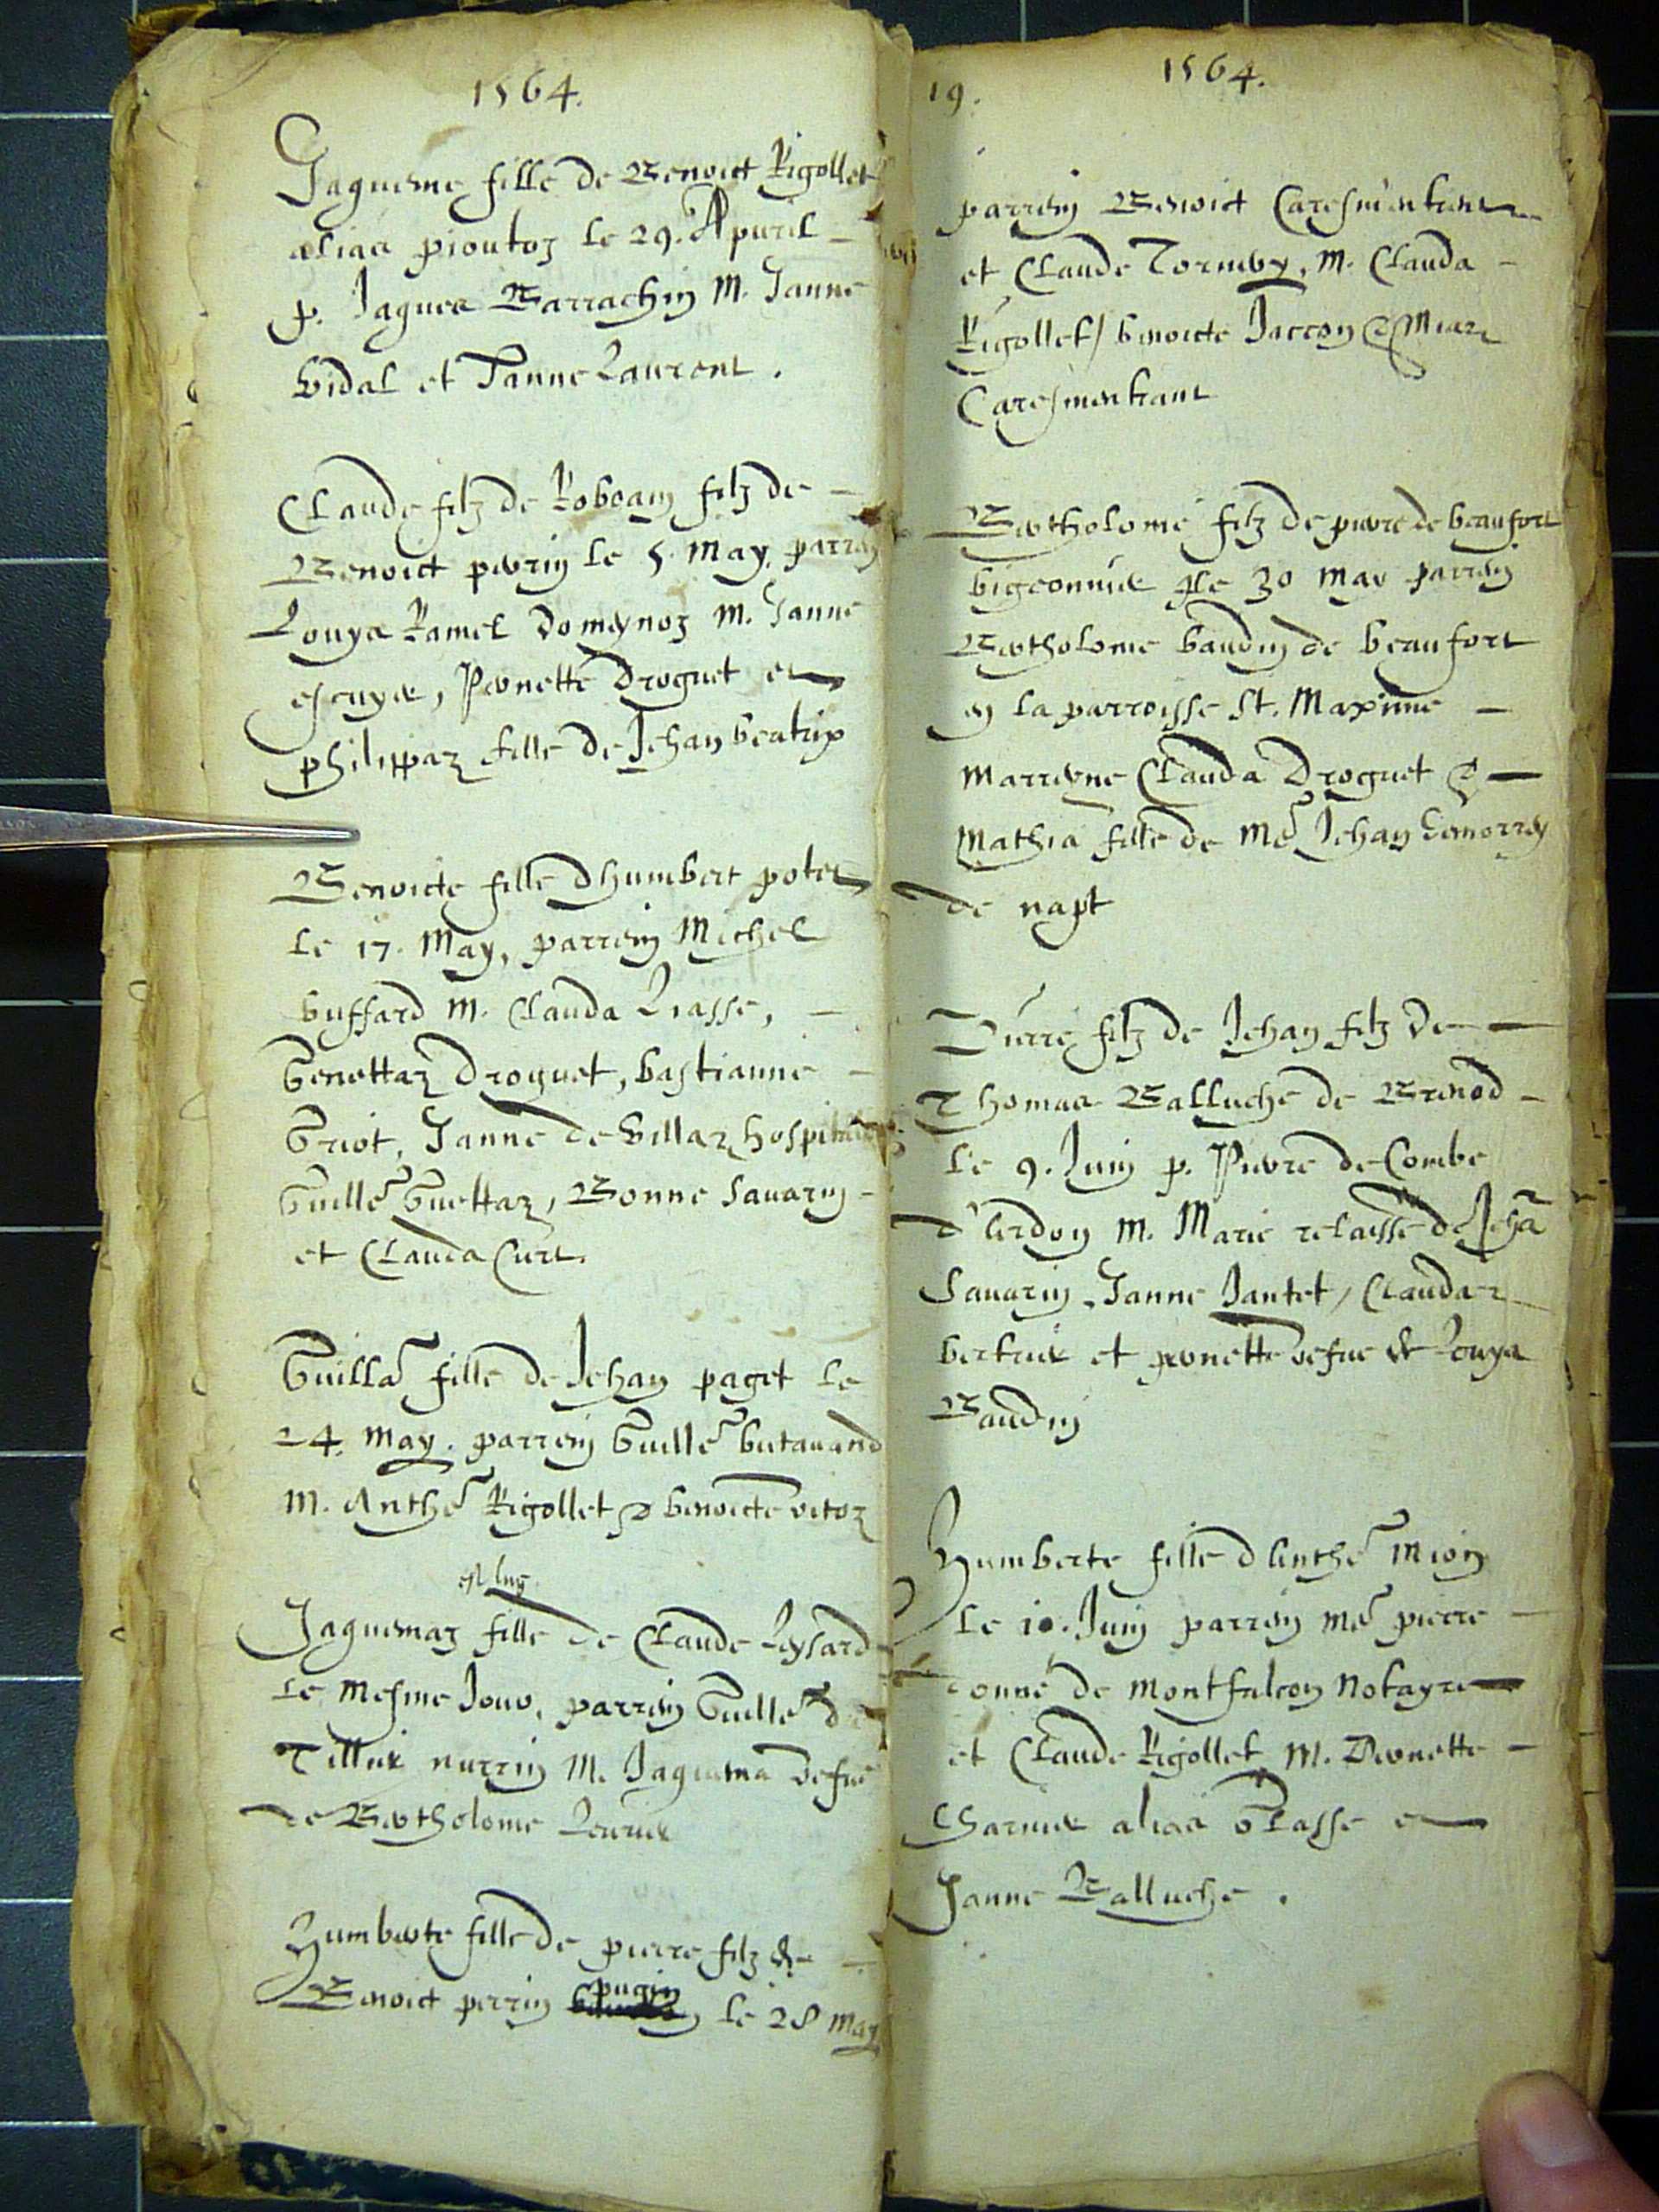 1564.
Jaqueme fille de Benoict Rigollet
alias pioutoz le 29. Apvril
p. Jaques Barrachin M. Janne
Vidal et Janne Laurent.
Claude filz de Roboam filz de
Benoict perrin le 5. May. parrin
Louys Ramel Domeynoz M. Janne
escuyer, Pernette Droguet et
philippaz fille de Jehan beatrix
Benoicte fille d'humbert potet
le 17. May, parrein Michel
buffard M. Clauda Liasse,
Genettaz Droguet, bastianne
Griot, Janne de Villaz
Guille Guettaz, Bonne Savarin
et Clauda Curt.
Guilla fille de Jehan paget le
24. May. parrein Guille butavand
M. Anthe Rigollet & benoicte vitoz
Jaquemaz fille de Claude Leysard
le mesme Jour, parrein Guille de
Tillier M. Jaquema vefue
de Bartholome
Humberte fille de pierre filz de
Benoict perrin pugin le 28 May
19.
1564.
parrein Benoict Caresmentrant
et Claude Tornier, M. Clauda
Rigollet / benoicte Jaccon &
Caresmentrant
Bartholome filz de pierre de beaufort
le 30 May parrein
Bartholome baudin de beaufort
en la parroisse St. Maxime
Marreyne Clauda Droguet &
Mathia fille de Me Jehan
de napt
Pierre filz de Jehan filz de
Thomas Balluche de Brenod
le 9. Juin p. Pierre de Combe
d'Cerdon M. Marie relaisse de Jeha
Savarin, Janne Jantet / Claudaz
et pernette vefue de Louys
Baudin
Humberte fille d'Anthe Mion
le 10. Juin parrein me pierre
donne de Montfalcon Notayre
et Claude Rigollet M. Pernette
Charnier alias
Janne Balluche.